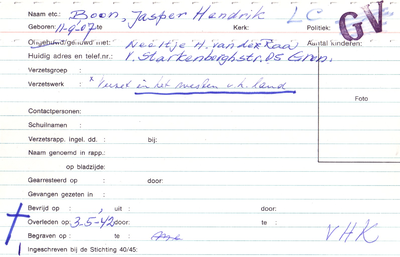 Naam etc.: Boon, Jasper Hendrik LC GV
Geboren: 11-9-07 te Kerk: Politiek:
Ongehuwd/gehuwd met: Neeltje H. van der Raa Aantal kinderen:
Huidig adres en telef.nr.: v. Starkenborghstr. 25 Gron.
Verzetsgroep :
Verzetswerk : x Verzet in het westen v.h. land
Foto
Contactpersonen:
Schuilnaam :
Verzetsrapp. ingel. dd. : bij:
Naam genoemd in rapp.:
op bladzijde:
Gearresteerd op : door:
Gevangen gezeten in :
Bevrijd op : , uit : door:
Overleden op: 3-5-42 door: te :
Begraven op : te : VHK
Ingeschreven bij de Stichting 40/45: